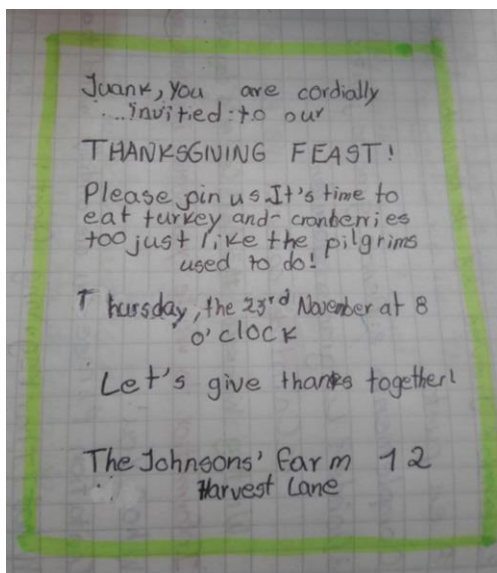 Juank, you are cordially
....invitied:to our
THANKSGIVING FEAST!
Please join us.It's time to
eat turkey and- cranberries
too just like the pilgrims
used to do!
Thursday, the 23rd November at 8
o'clock
Let's give thanks together!
The Johnsons' farm 12
Harvest Lane